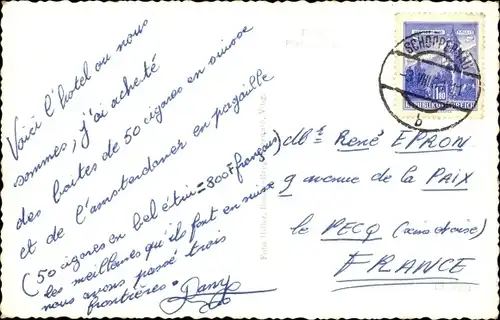 Voici l'hotel ou nous
sommes, j'ai acheté
des boites de 50 cigares en suisse
et de l'amsterdamer en pagaille
(50 cigares en bel étui = 800F français)
les meilleures qu'ils font en suisse
nous avons passé trois
frontières. Dany
SCHOPPERNAU
VIII
b
1.80
REPUBLIK ÖSTERREICH
René EPRON
9 avenue de la PAIX
le PECQ
FRANCE